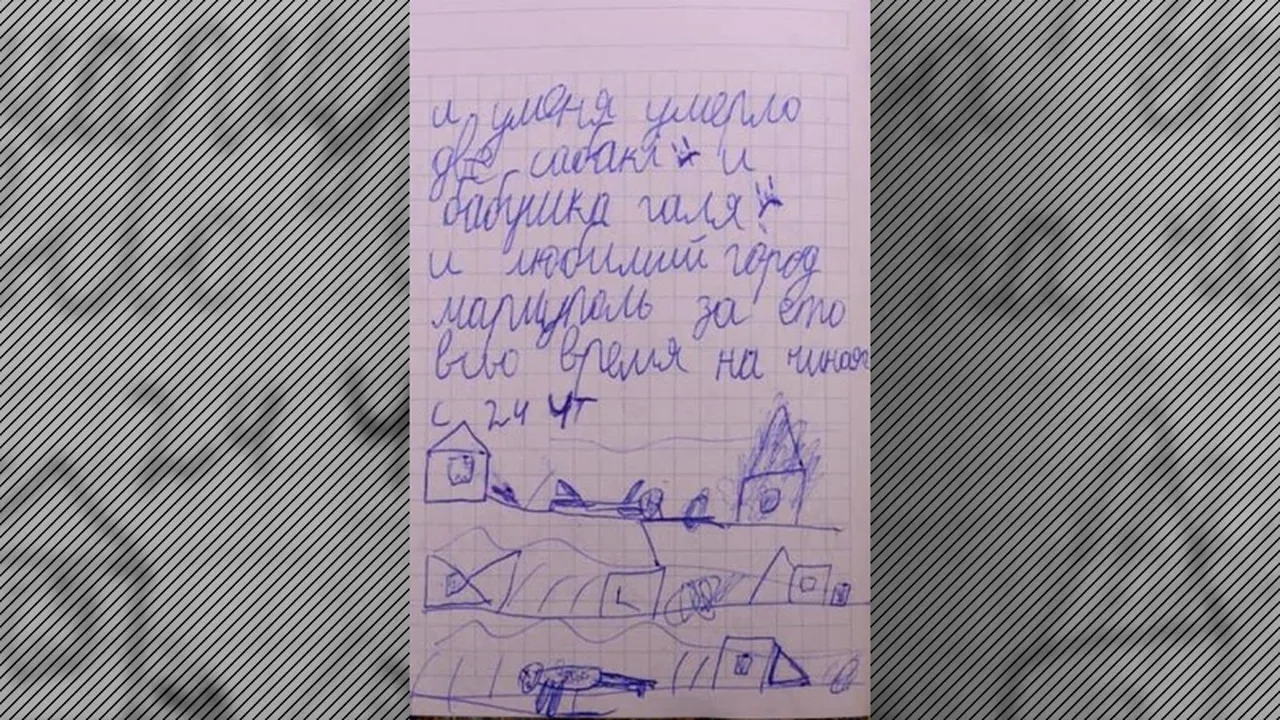 и уменя умерло
две сабаки и
бабушка галя
и любимий город
мариуполь за ето
всьо время на чиная
с 24 чт